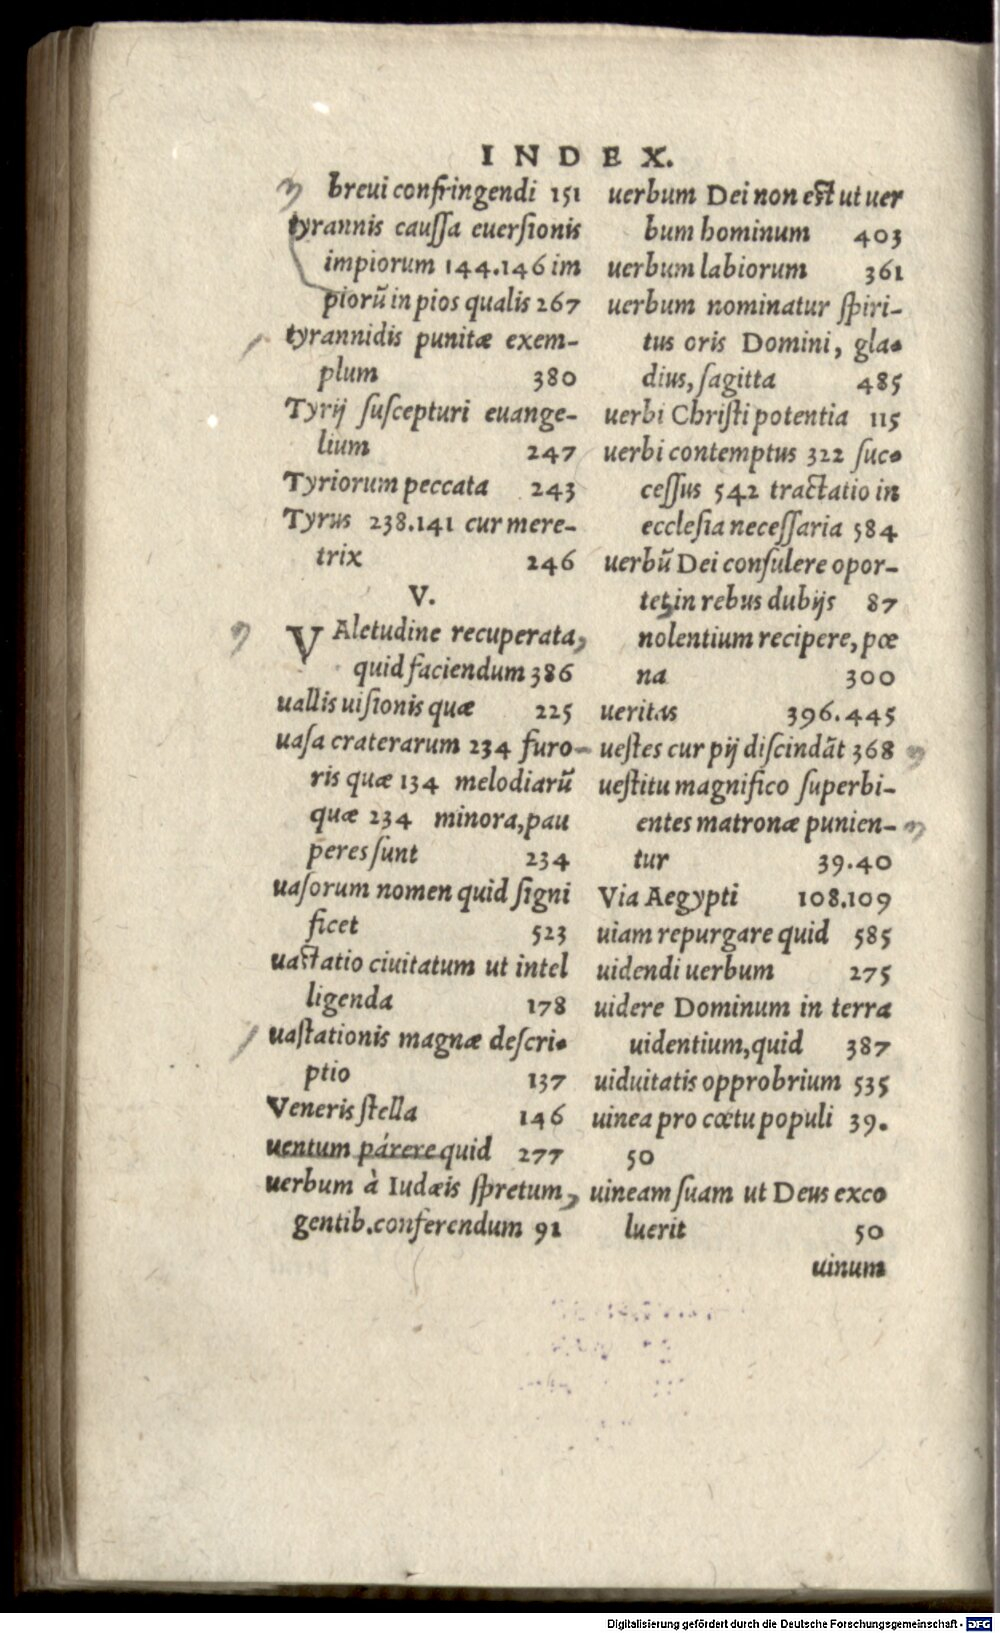 INDEX.
breui confringendi 151
tyrannis caussa euersionis
impiorum 144.146 im
piorū in pios qualis 267
tyrannidis punitæ exem-
plum 380
Tyrij suscepturi euange-
lium 247
Tyriorum peccata 243
Tyrus 238.141 cur mere-
trix 246
V.
VAletudine recuperata,
quid faciendum 386
uallis uisionis quæ 225
uasa craterarum 234 furo-
ris quæ 134 melodiarū
quæ 234 minora, pau
peres sunt 234
uasorum nomen quid signi
ficet 523
uastatio ciuitatum ut intel
ligenda 178
uastationis magnæ descri-
ptio 137
Veneris stella 146
uentum párere quid 277
uerbum à Iudæis spretum,
gentib. conferendum 91
uerbum Dei non est ut uer
bum hominum 403
uerbum labiorum 361
uerbum nominatur spiri-
tus oris Domini, gla-
dius, sagitta 485
uerbi Christi potentia 115
uerbi contemptus 322 suc-
cessus 542 tractatio in
ecclesia necessaria 584
uerbū Dei consulere opor-
tet, in rebus dubijs 87
nolentium recipere, pœ
na 300
ueritas 396.445
uestes cur pij discindāt 368
uestitu magnifico superbi-
entes matronæ punien-
tur 39.40
Via Aegypti 108.109
uiam repurgare quid 585
uidendi uerbum 275
uidere Dominum in terra
uidentium, quid 387
uiduitatis opprobrium 535
uinea pro cœtu populi 39.
50
uineam suam ut Deus exco
luerit 50
uinum
Digitalisierung gefördert durch die Deutsche Forschungsgemeinschaft - DFG